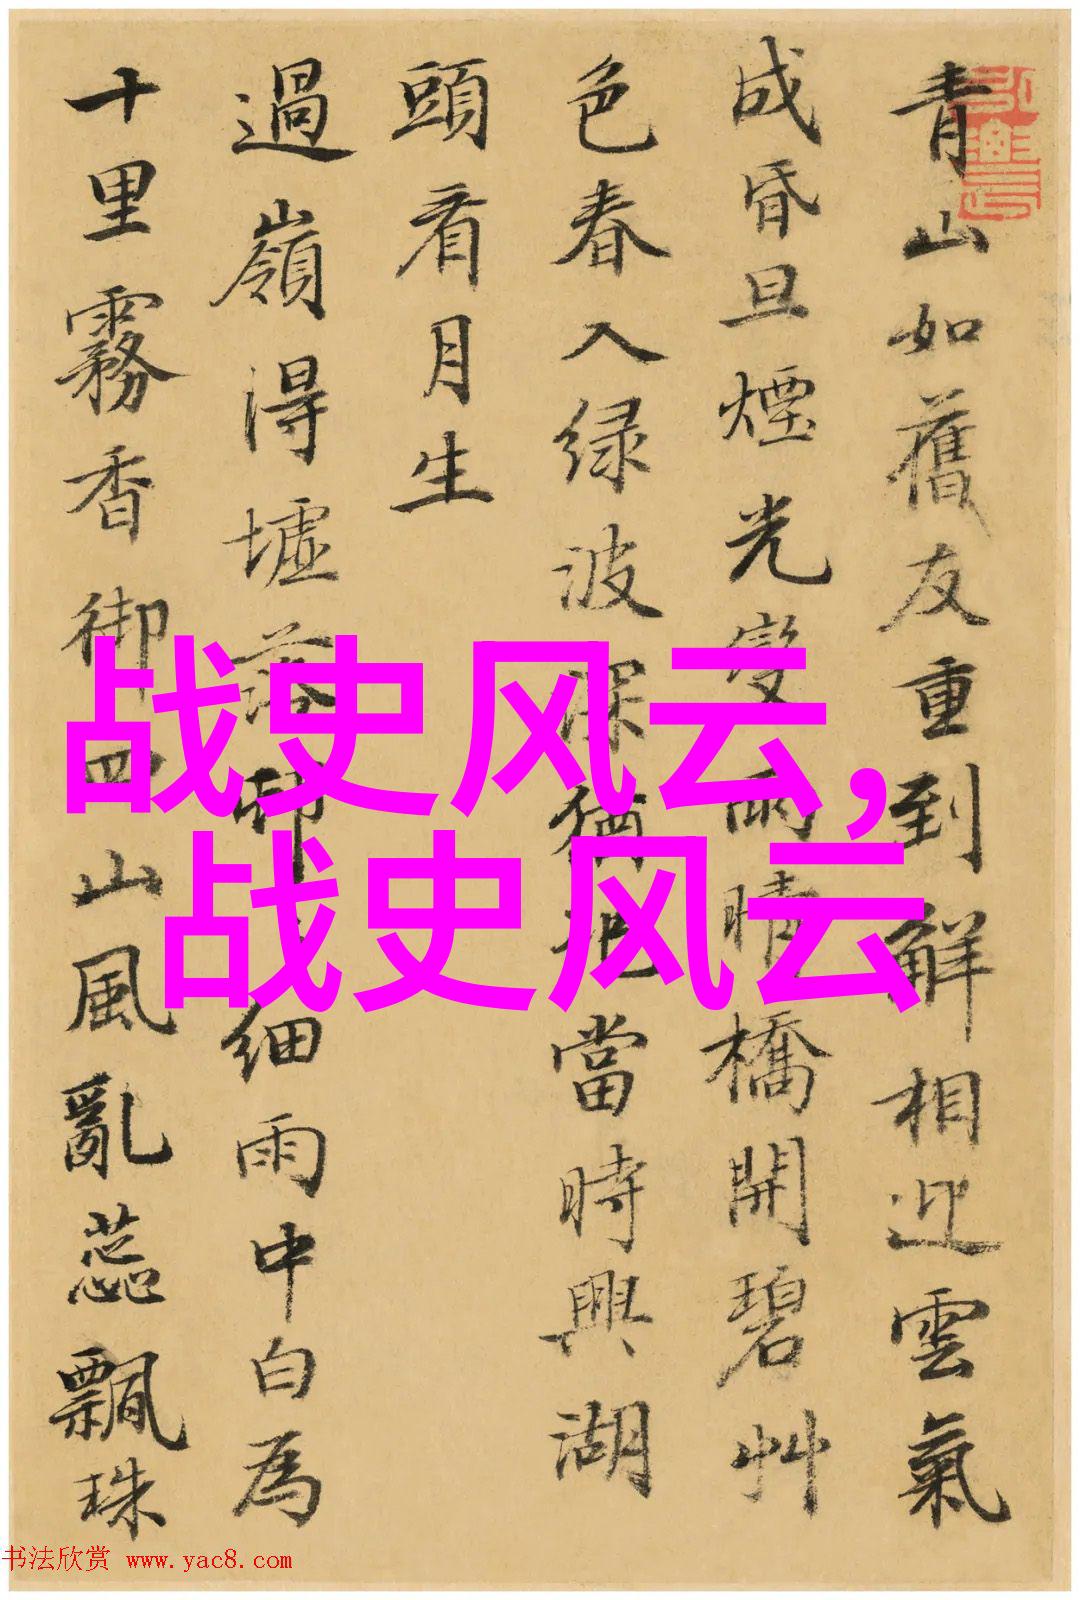 青山如舊友重到解相迎雲氣
成昏旦煙光變雨晴橋開碧艸
色春入绿波深猶把當時興湖
頭看月生
過嶺得墟落邨細雨中白為
十里霧香御四山風亂蕊飄珠
战史风云,
战史风云
书法欣赏 www.yac8.com